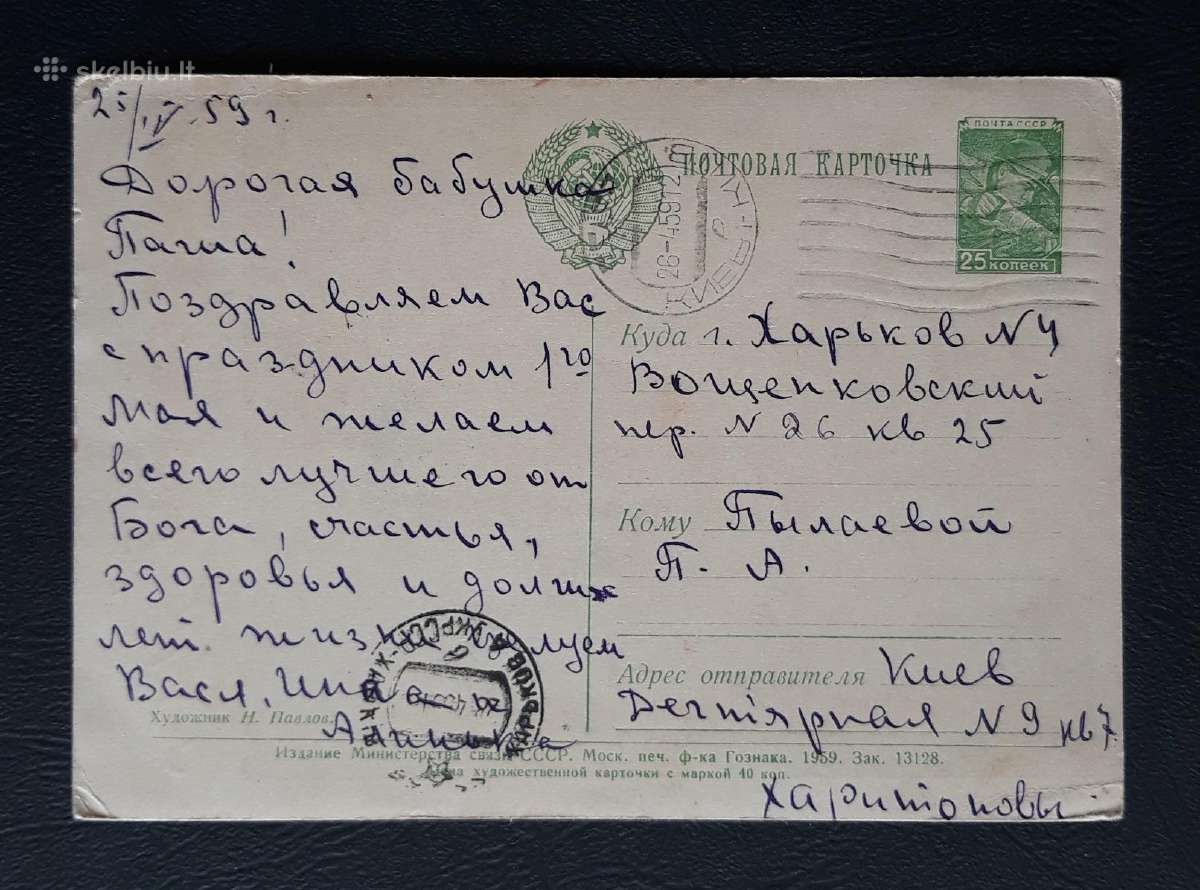 skelbiu.lt
25/IV 59 г.
Дорогая бабушка
Паша!
Поздравляем Вас
с праздником 1го
мая и желаем
всего лучшего от
Бога, счастья,
здоровья и долгих
лет жизни
Вася, Инна
ПОЧТОВАЯ КАРТОЧКА
ПОЧТА СССР
25 КОПЕЕК
26-4 59 12
КИЕВ
Куда г. Харьков N 4
Вощенковский
пер. N 26 кв 25
Кому Пылаевой
П. А.
Адрес отправителя Киев
Дегтярная N 9 кв 7
Харитоновы
ХАРЬКОВ УКРССР
Художник Н. Павлов.
Издание Министерства связи СССР. Моск. печ. ф-ка Гознака. 1959. Зак. 13128.
Цена художественной карточки с маркой 40 коп.